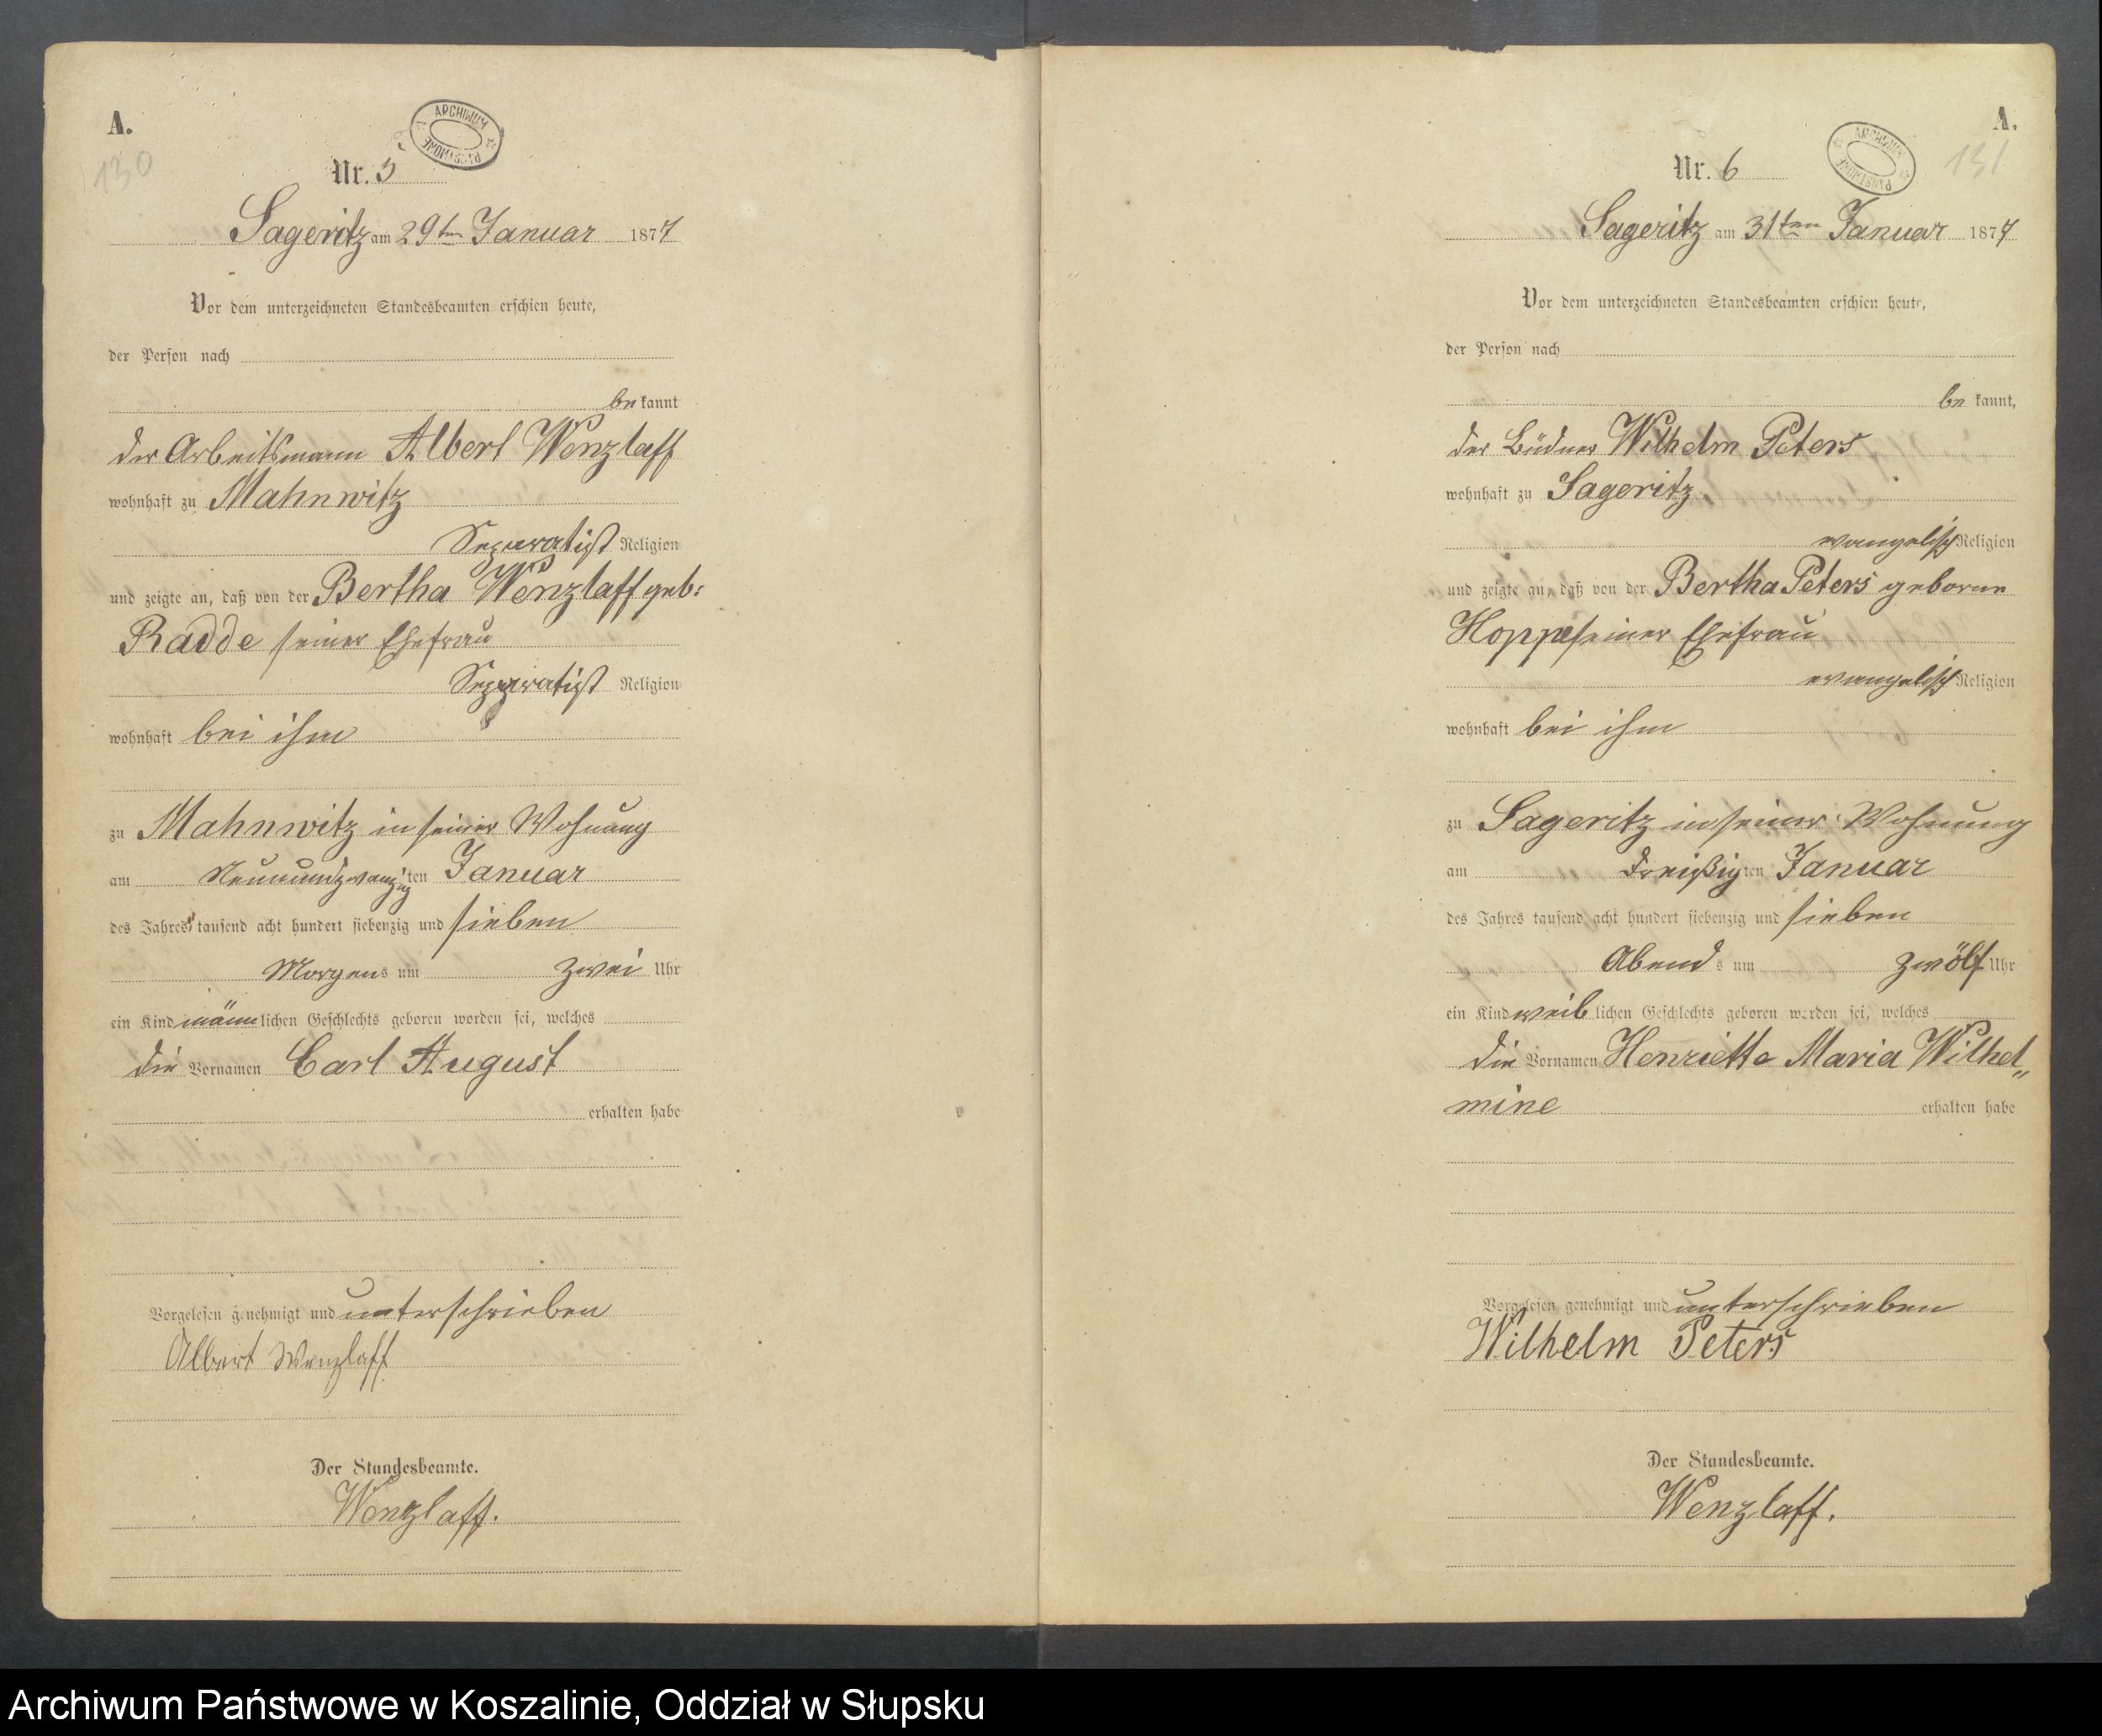 A.
130
ARCHIWUM PAŃSTWOWE
Nr. 5
Sageritz am 29ten Januar 1877
Vor dem unterzeichneten Standesbeamten erschien heute,
der Person nach
be kannt
der Arbeitsmann Albert Wenzlaff
wohnhaft zu Mahnwitz
Separatist Religion
und zeigte an, daß von der Bertha Wenzlaff geb:
Radde seiner Ehefrau
Separatist Religion
wohnhaft bei ihm
zu Mahnwitz in seiner Wohnung
am Neunundzwanzigten Januar
des Jahres tausend acht hundert siebenzig und sieben
Morgens um zwei Uhr
ein Kind männlichen Geschlechts geboren worden sei, welches
die Vornamen Carl August
erhalten habe
Vorgelesen genehmigt und unterschrieben
Albert Wenzlaff
Der Standesbeamte.
Wenzlaff.
A.
131
ARCHIWUM PAŃSTWOWE
Nr. 6
Sageritz am 31ten Januar 1877
Vor dem unterzeichneten Standesbeamten erschien heute,
der Person nach
be kannt,
der Büdner Wilhelm Peters
wohnhaft zu Sageritz
evangelisch Religion
und zeigte an, daß von der Bertha Peters geborne
Hoppe seiner Ehefrau
evangelisch Religion
wohnhaft bei ihm
zu Sageritz in seiner Wohnung
am dreißigten Januar
des Jahres tausend acht hundert siebenzig und sieben
Abends um zwölf Uhr
ein Kind weiblichen Geschlechts geboren worden sei, welches
die Vornamen Henriette Maria Wilhel„
mine erhalten habe
Vorgelesen genehmigt und unterschrieben
Wilhelm Peters
Der Standesbeamte.
Wenzlaff.
Archiwum Państwowe w Koszalinie, Oddział w Słupsku